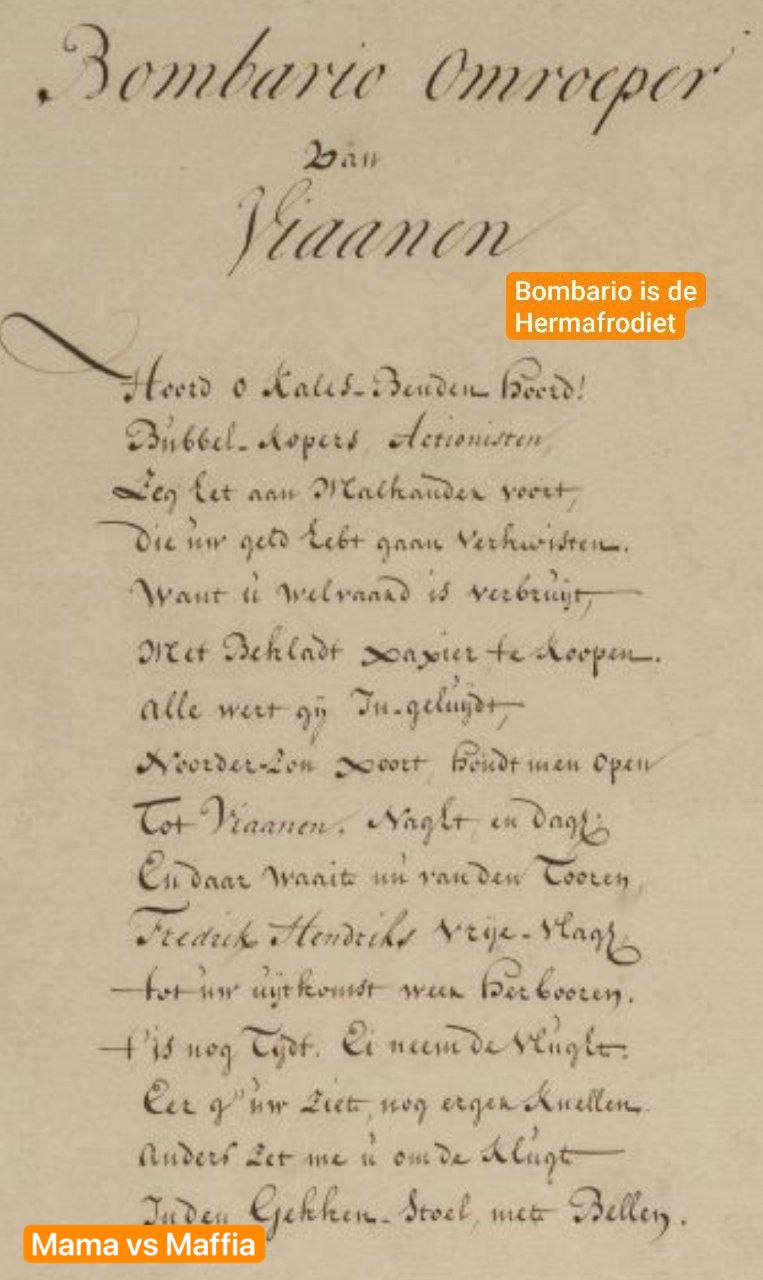 Bombario Omroeper
van
Viaanen
Bombario is de
Hermafrodiet
Hoord o Kales-Benden hoord!
Bubbel-kopers, Actionisten,
Zeg het aan Malkander voort,
Die uw geld hebt gaan verkwisten.
Want u welvaard is verbruÿt,
Met Bekladt papier te koopen.
alle wert gÿ In-geluÿdt,
Noorder-Zon poort, houdt men open
Tot Viaanen. Naght en dagh;
En daar waait nu van den Tooren,
Fredrik Hendriks vrÿe-vlagh,
tot uw uÿtkomst weer herbooren.
't is nog Tÿdt. Ei neem de vlught:
Eer g' uw ziet, nog erger knellen.
Anders zet me u om de klught
In den Gekken-Stoel, met Bellen.
Mama vs Maffia